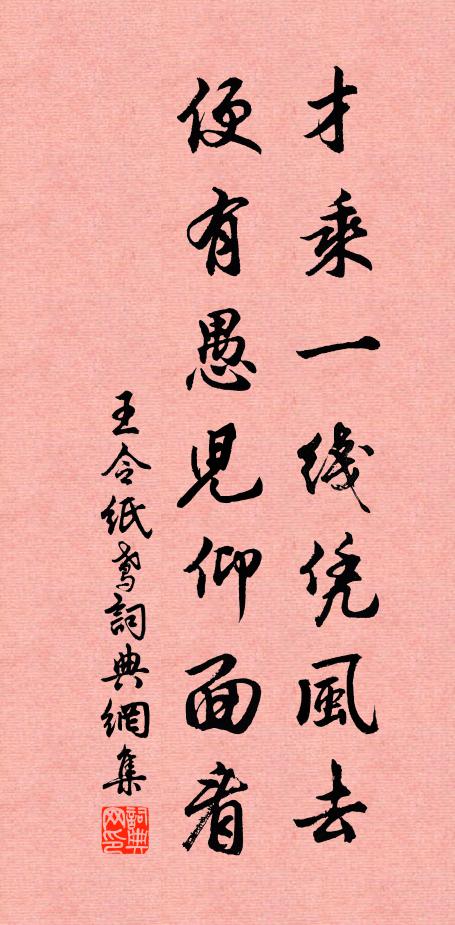 才乘一线凭風去
便有愚児仰面看
王令纸鸢詞典網集
詞典网印